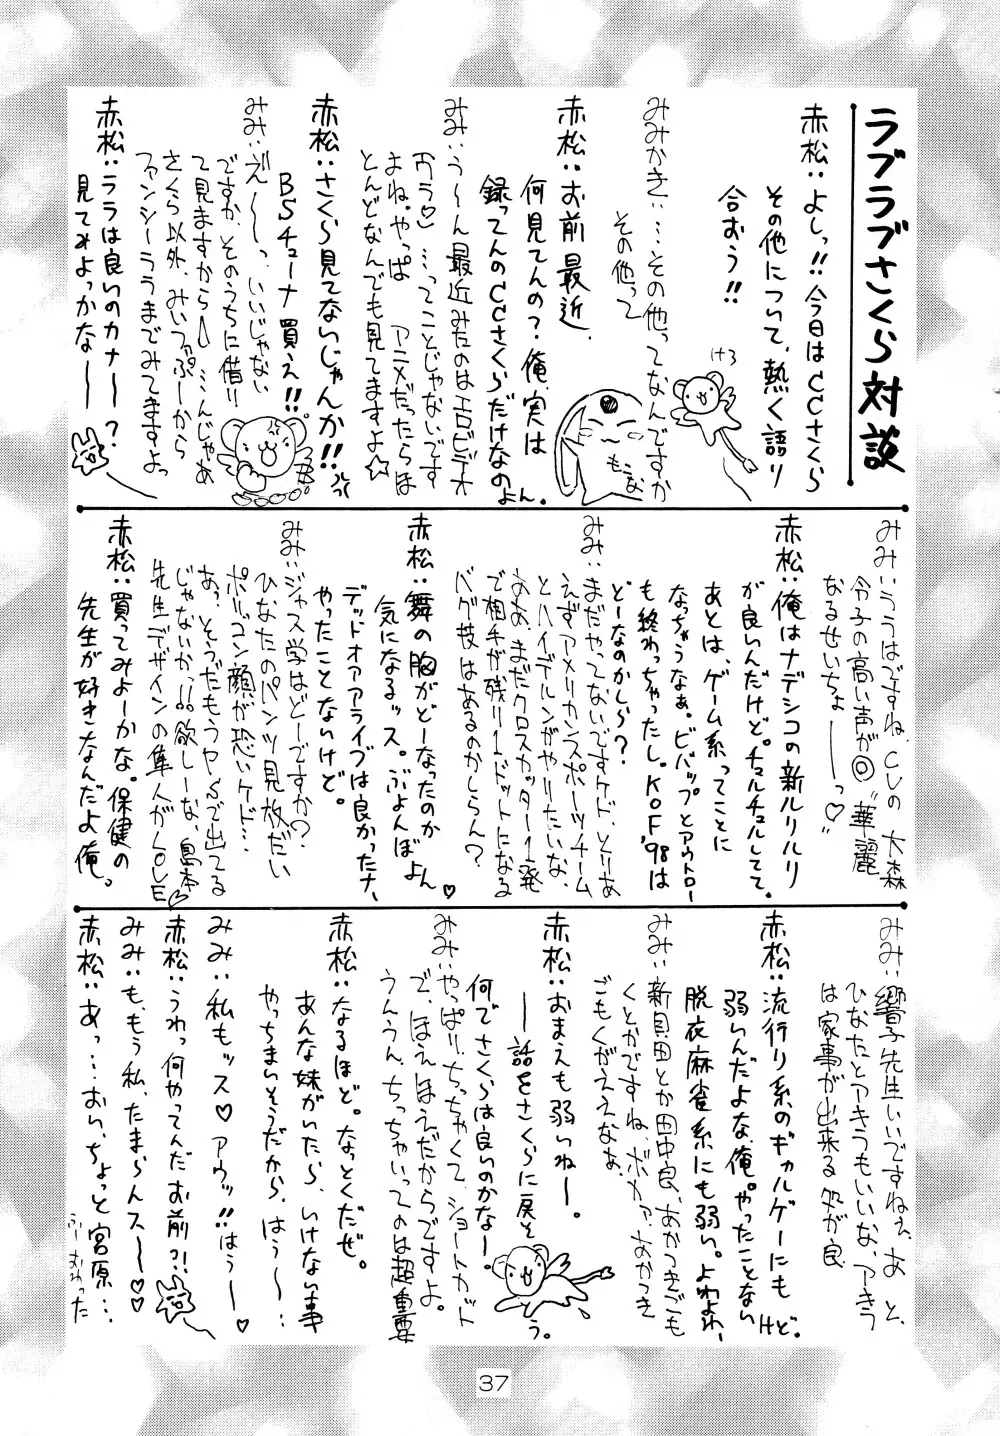 ラブラブさくら対談
赤松：よしっ!!今日はCCさくら
その他について、熱く語り
合おう!!
みみかき：…その他ってなんですか
その他って
赤松：お前最近
何見てんの?俺、実は
録ってんのCCさくらだけなの
よん。
みみ：う～ん最近みたのはエロビデオ
おう♡…ってことじゃないです
よね。やっぱ アニメだったらほ
とんどなんでも見てますよ☆
赤松：さくら見てないじゃんか!!
BSチューナ買え!!
みみ：え～～っ、いいじゃない
ですか、そのうちに借り
て見ますから～…んじゃあ
さくら以外、みいつぷーから
ファンシーララまでみてますよっ
赤松：ララは良いのカナー?
見てみよっかなー
けろ
もうな
みみ：ううはですね、CVの大森
令子の高い声が◎“華麗
なるせいちょーーっ♡”
赤松：俺はナデシコの新ルリルリ
が良いんだけど。チュルチュルしてて。
あとは、ゲーム系ってことに
なっちゃうなぁ。ビバップとアウトロー
も終わっちゃったし。KOF'98は
どーなのかしら?
みみ：まだやってないですケド、とりあ
えずアメリカンスポーツチーム
とハイデルンがやりたいな、
ああ、まだクロスカッター1発
で相手が残り1ドットになる
バグ技はあるのかしらん?
赤松：舞の胸がどーなったのか
気になるッス。ぷよんぼよん♡
デッドオアアライブは良かったナ、
やったことないけど。
みみ：ジャス学はどーですか?
ひなたのパンツ見放だい
ポリゴン顔が恐いケド…
あっ、そうだもうヤSで出てる
じゃないかっ欲しーな、島本
先生デザインの隼人がLOVE♡
赤松：買ってみよーかな。保健の
先生が好きなんだよ俺。
みみ：響子先生いいですねぇ、あと、
ひなたとアキラもいいな、アキラ
は家事が出来る処が良
赤松：流行り系のギャルゲーにも
弱いんだよな、俺。やったことないけど。
脱衣麻雀系にも弱い。よわよわ、
みみ：新貝田とか田中良、あかつきごも
くとかですね、ボカァ、あかつき
ごもくがええなぁ
赤松：おまえも弱いねー。
──話をさくらに戻そう。
何でさくらは良いのかなー
みみ：やっぱり、ちっちゃくて、ショートカット
で、ほえほえだからですよ。
うんうん、ちっちゃいってのは超重要
赤松：なるほど。なっとくだぜ。
あんな妹がいたら、いけない事
やっちまいそうだから、はう～…
みみ：私もッス♡アウッ!!はぅー♡
赤松：うわっ何やってんだお前?!!
みみ：も、もう私、たまらんスー♡♡
赤松：あっ…おい、ちょっと宮原…
ふーおわった
37